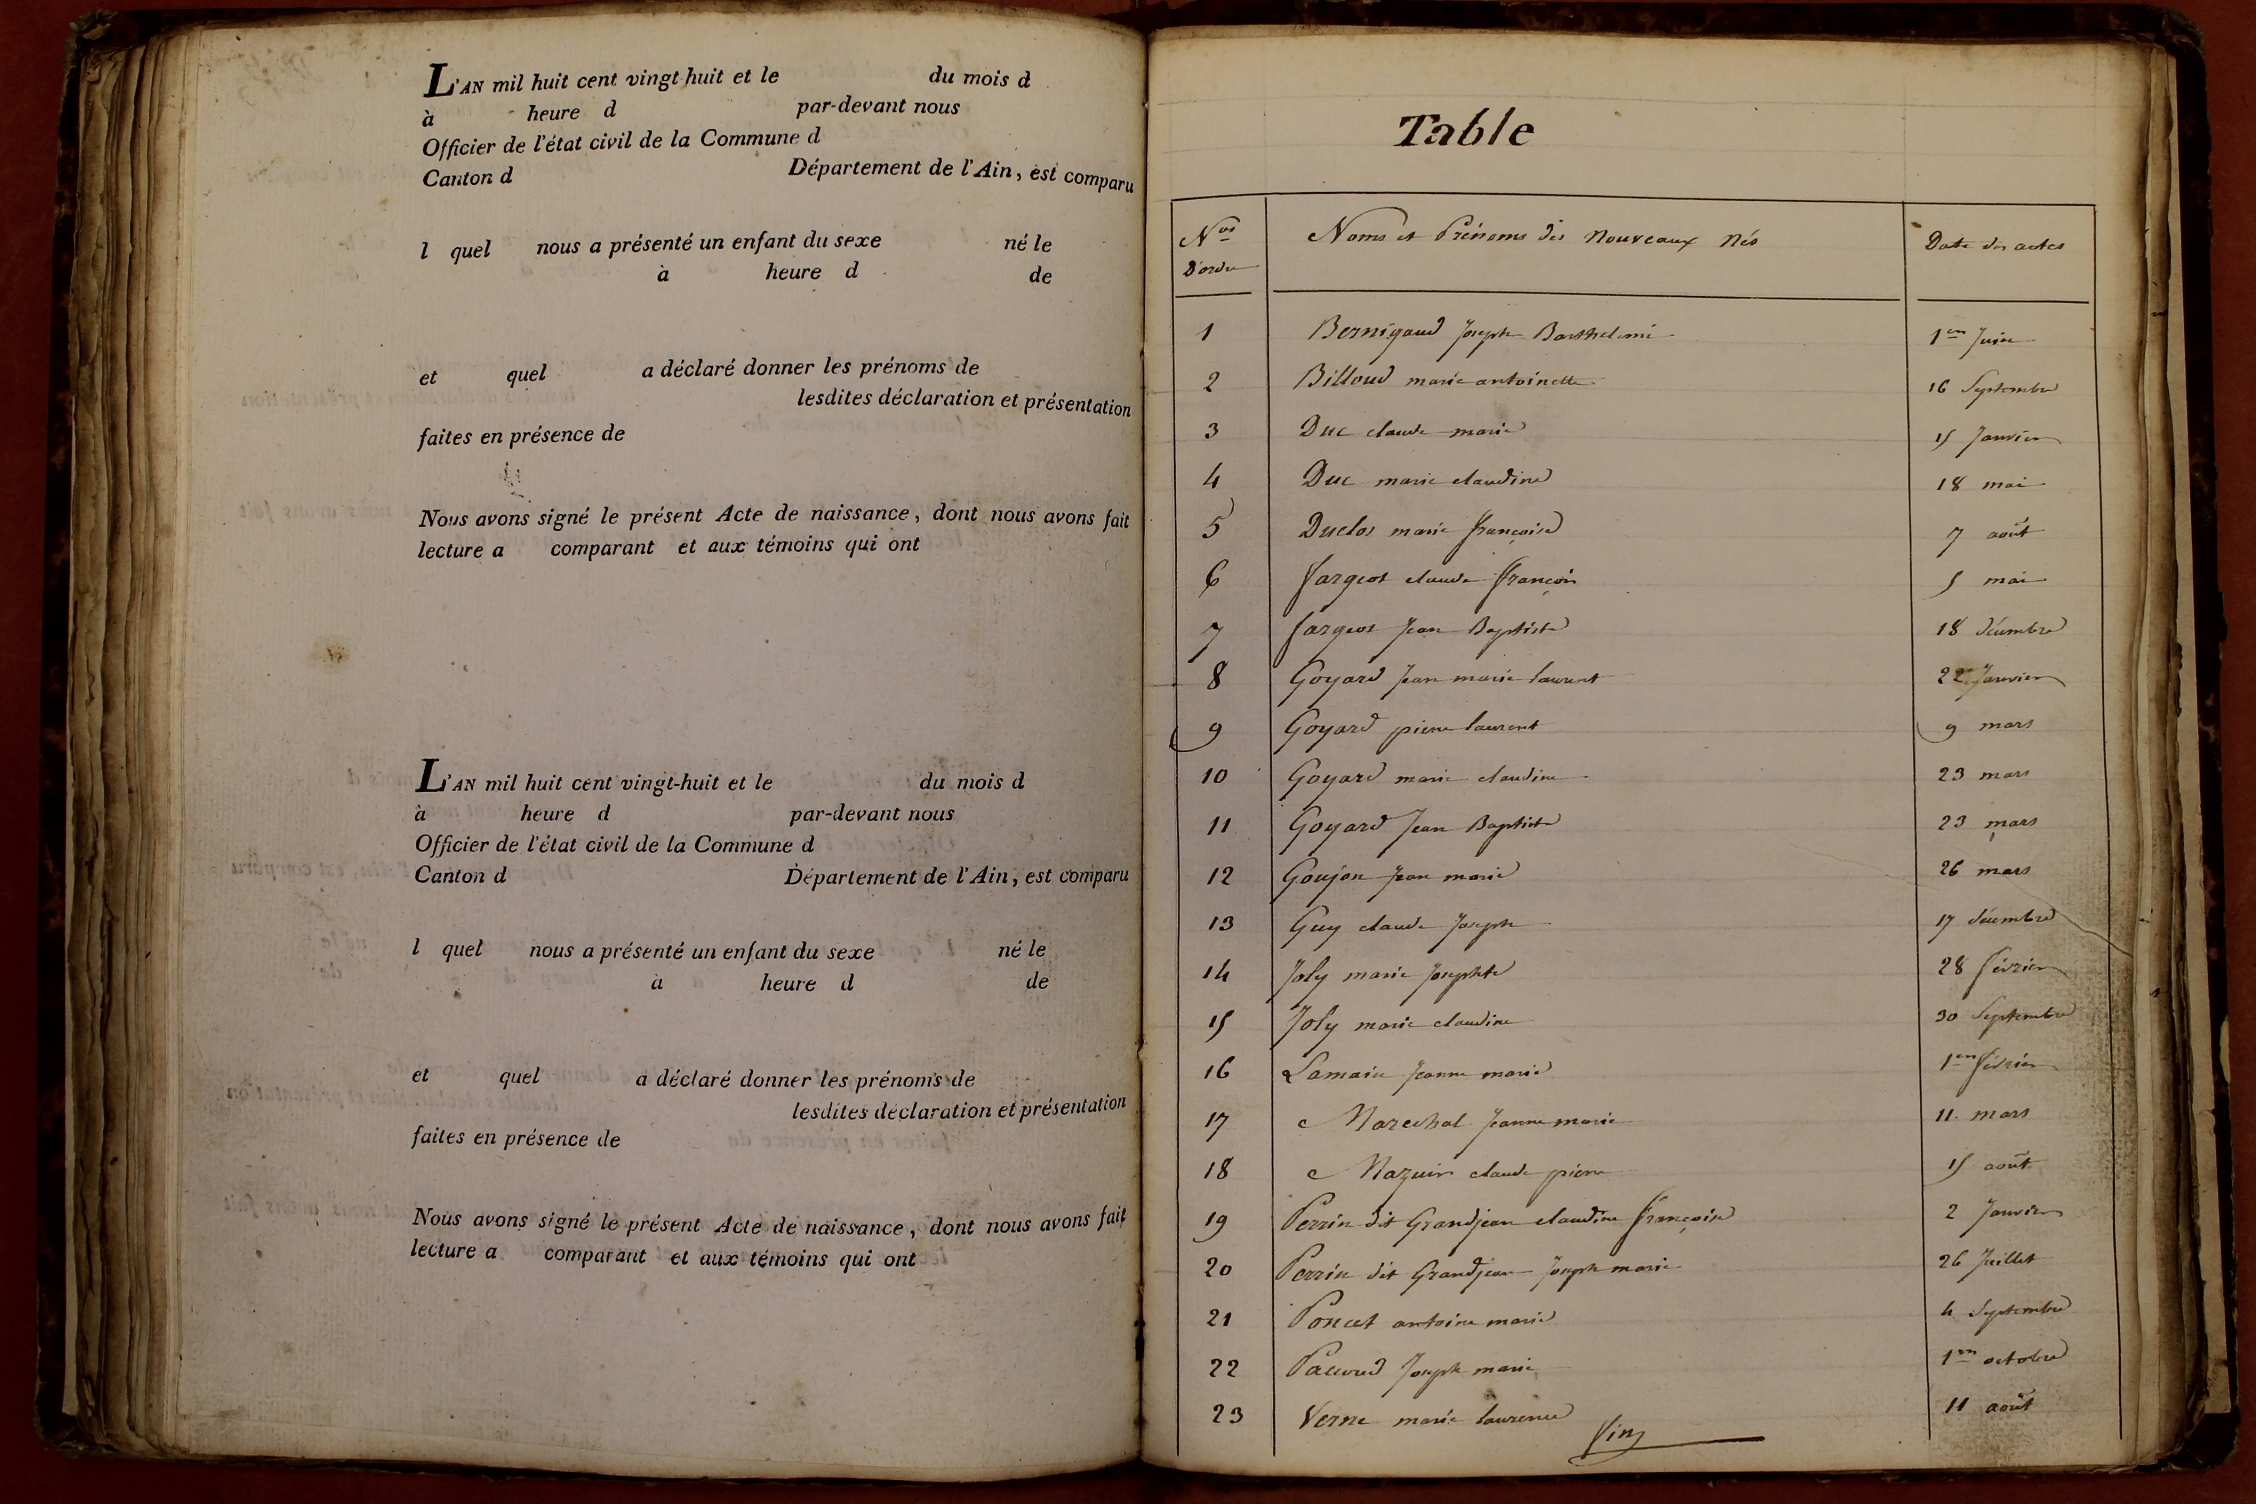 L'AN mil huit cent vingt-huit et le du mois d
à heure d par-devant nous
Officier de l'état civil de la Commune d
Canton d Département de l'Ain, est comparu
l quel nous a présenté un enfant du sexe né le
à heure d de
et quel a déclaré donner les prénoms de
lesdites déclaration et présentation
faites en présence de
Nous avons signé le présent Acte de naissance, dont nous avons fait
lecture a comparant et aux témoins qui ont
L'AN mil huit cent vingt-huit et le du mois d
à heure d par-devant nous
Officier de l'état civil de la Commune d
Canton d Département de l'Ain, est comparu
l quel nous a présenté un enfant du sexe né le
à heure d de
et quel a déclaré donner les prénoms de
lesdites déclaration et présentation
faites en présence de
Nous avons signé le présent Acte de naissance, dont nous avons fait
lecture a comparant et aux témoins qui ont
Table
Nos D'ordre Noms et Prénoms des Nouveaux Nés Date des actes
1 Bernigaud Joseph Barthelemi 1er Juin
2 Billoud marie antoinette 16 Septembre
3 Duc claude marie 15 Janvier
4 Duc marie claudine 18 mai
5 Duclos marie françoise 7 août
6 fargeot claude françois 5 mai
7 fargeot Jean Baptiste 18 décembre
8 Goyard Jean marie laurent 22 Janvier
9 Goyard pierre laurent 9 mars
10 Goyard marie claudine 23 mars
11 Goyard Jean Baptiste 23 mars
12 Goujon Jean marie 26 mars
13 Guy claude Joseph 17 décembre
14 Joly marie Josephte 28 février
15 Joly marie claudine 30 Septembre
16 Lamain Jeanne marie 1er février
17 Marechal Jeanne marie 11 mars
18 Mazuir claude pierre 15 août
19 Perrin dit Grandjean claudine françoise 2 Janvier
20 Perrin dit Grandjean Joseph marie 26 Juillet
21 Poncet antoine marie 4 Septembre
22 Joseph marie 1er octobre
23 Verne marie laurence 11 août
fin